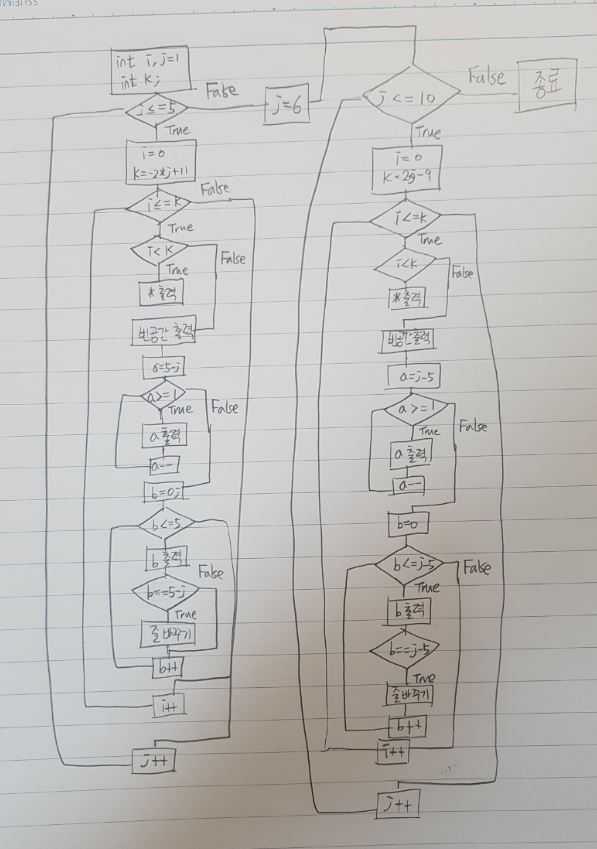 int i, j=1
int k;
j<=5
False
j=6
True
i=0
k=-2*j+11
i<=k
False
True
i<k
False
True
*출력
빈공간 출력
a=5-j
a>=1
True
False
a출력
a--
b=0;
b<=5
b출력
b==5-j
False
True
줄바꾸기
b++
i++
j++
j<=10
False
종료
True
i=0
k=2j-9
i<=k
True
i<k
False
*출력
빈공간출력
a=j-5
a>=1
True
False
a출력
a--
b=0
b<=j-5
False
True
b출력
b==j-5
True
줄바꾸기
b++
i++
j++